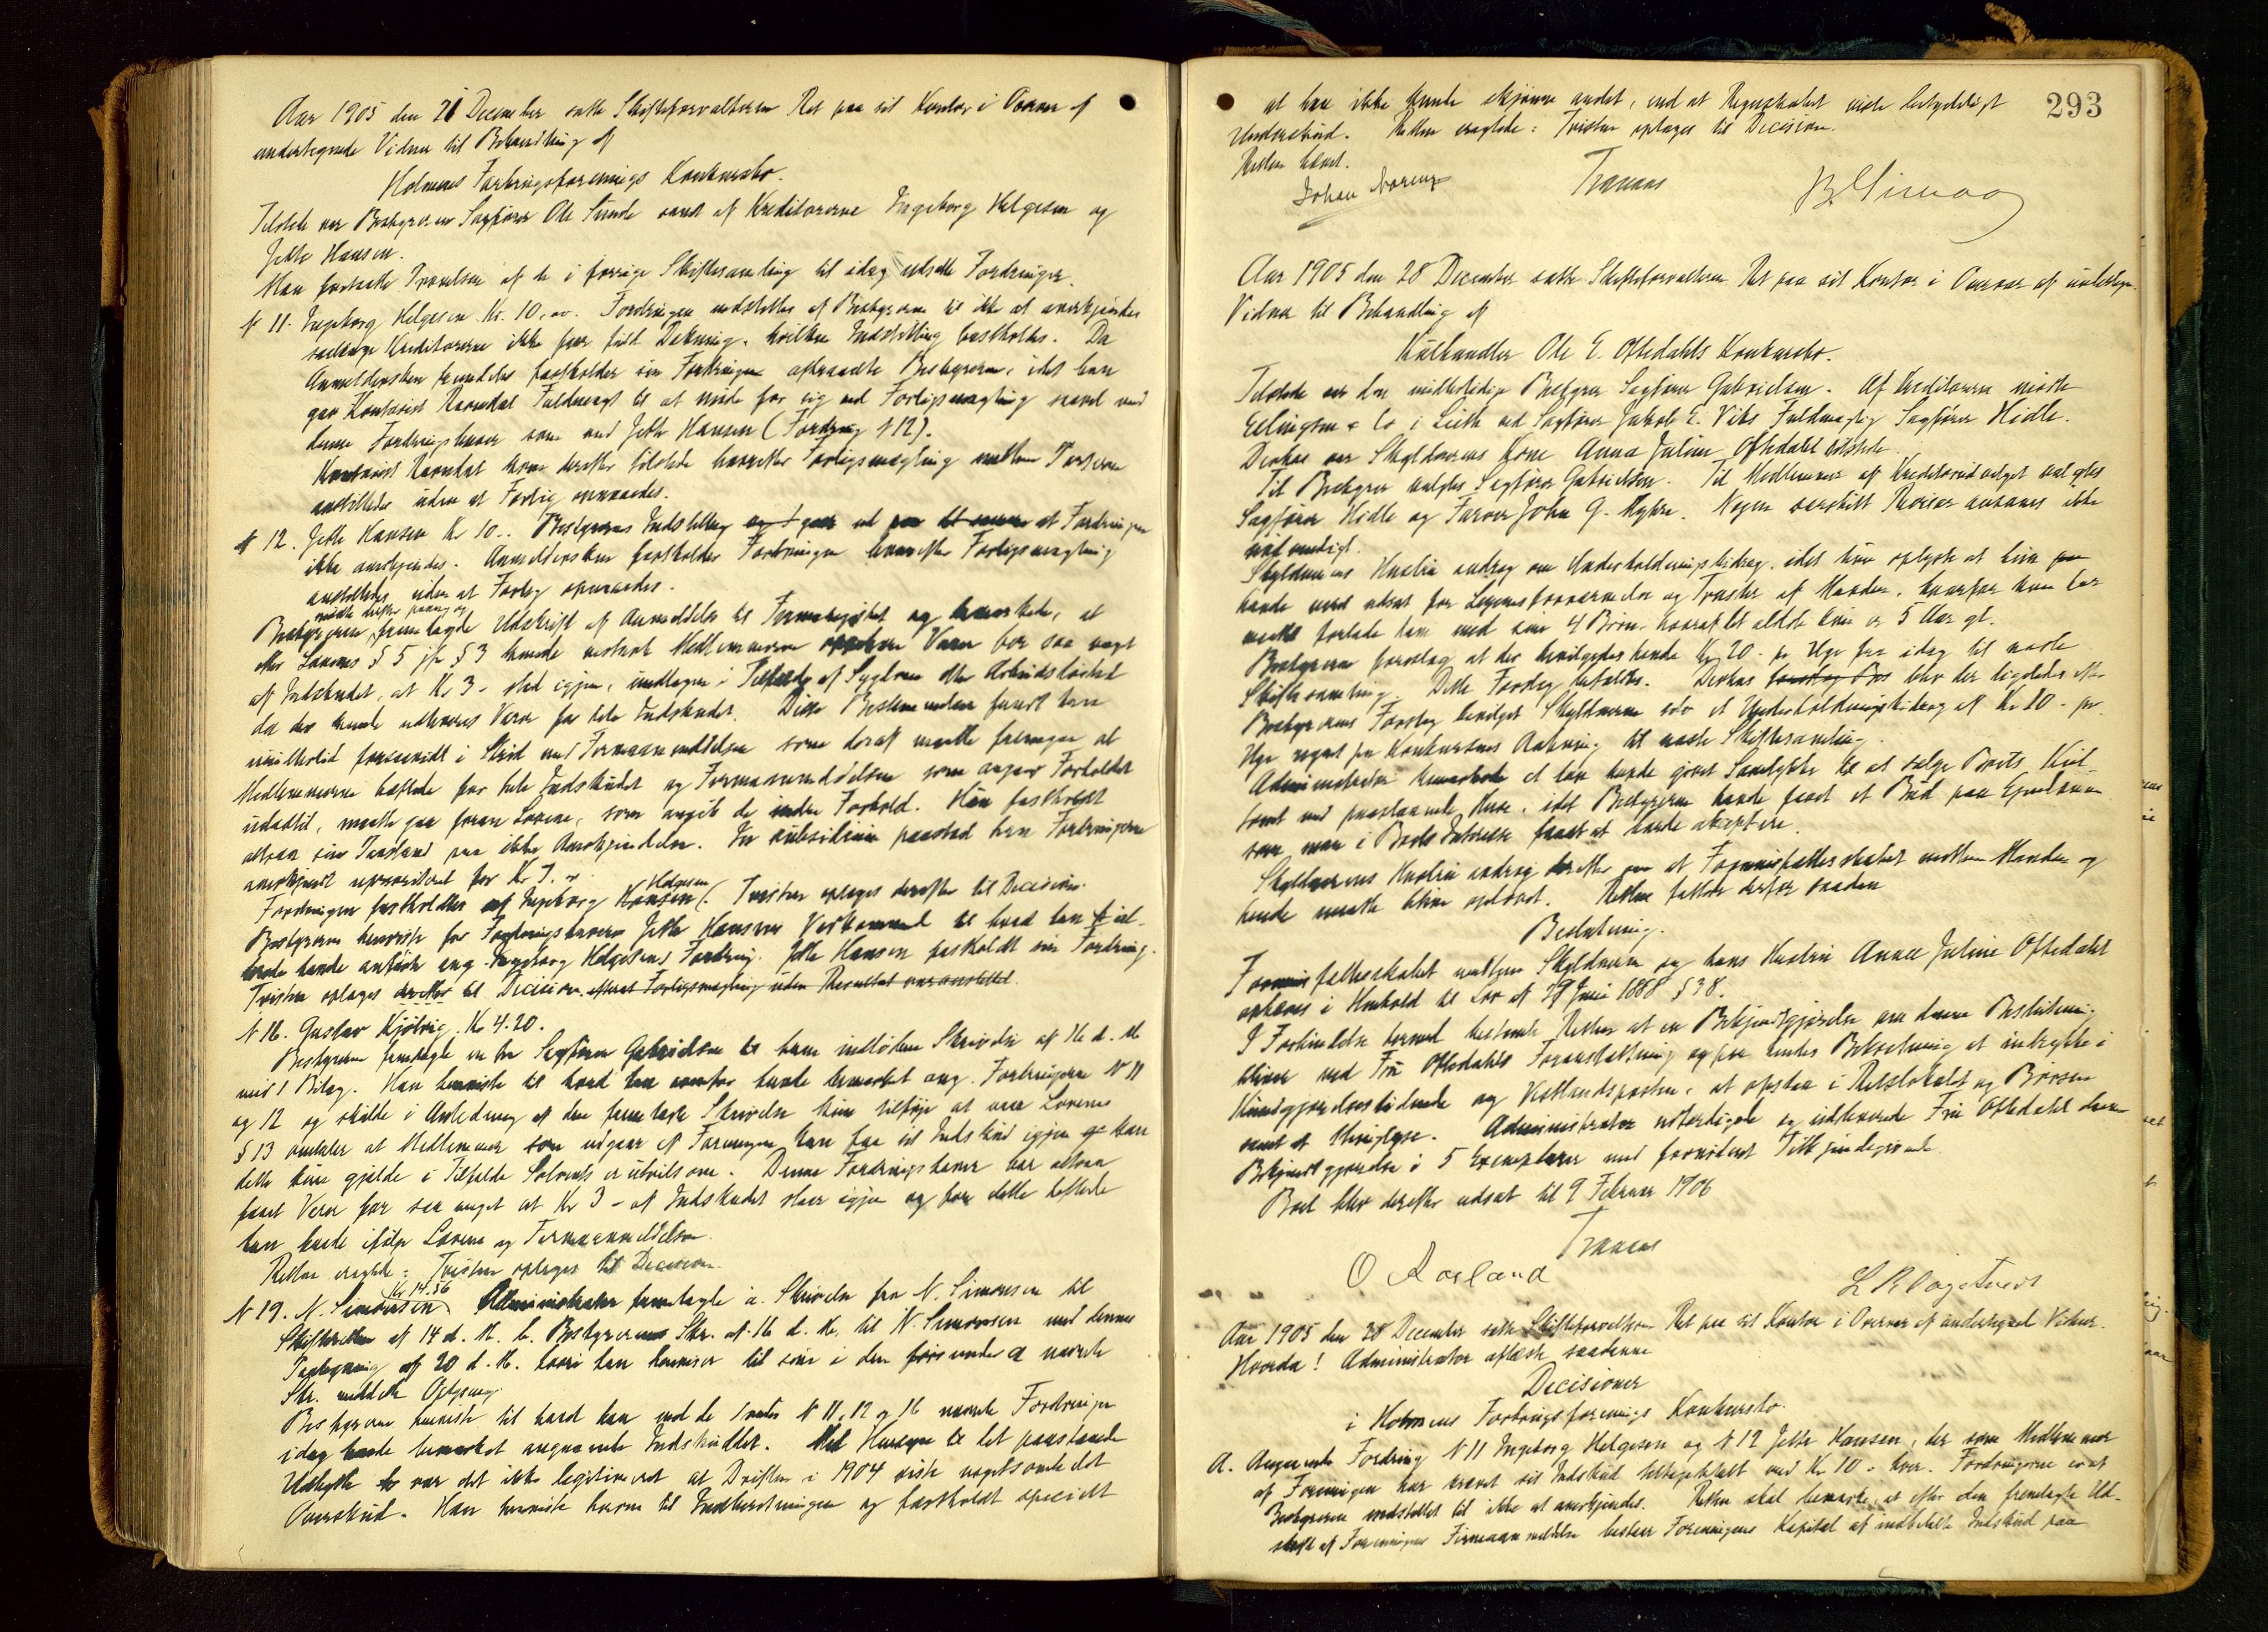 Aar 1905 den 21 December satte Skifteforvalteren Ret paa sit Kontor i Overvær af
undertegnede Vidner til Behandling af
Holmens Forbrugsforenings Konkursbo.
Tilstede var Bestyreren Sagfører Ole Sunde samt af Kreditorerne Ingeborg Helgesen og
Jette Hansen.
Man fortsatte Prøvelsen af de i forrige Skiftesamling til idag udsatte Fordringer.
N 11. Ingeborg Helgesen Kr. 10,00. Fordringen indstilles af Bestyreren til ikke at anerkjendes
saalænge Kreditorerne ikke faar fuld Dækning, hvilken Indstilling fastholdes. Da
Anmeldersken fremdeles fastholder sin Fordringen Bestyreren, idet han
gav Kontorist Ravndal Fuldmagt til at møde for sig ved Forligsmægling saavel med
denne Fordringshaver som med Jette Hansen (Fordring N 12).
Kontorist Ravndal kom derefter tilstede hvorefter Forligsmægling mellem Parterne
anstilledes uden at Forlig opnaaedes.
N 12. Jette Hansen Kr 10.. Bestyrerens Indstilling gaar ud paa at Fordringen
ikke anerkjendes. Anmeldersken fastholder Fordringen hvorefter Forligsmægling
anstilledes uden at Forlig opnaaedes.
mødte derefter paany og
Bestyreren fremlagde Udskrift af Anmeldelse til Firmaregistret og bemærkede, at
efter Lovenes § 5 jfr § 3 kunde Medlemmerne Varer for saa meget
af Indskudet, at Kr 3 - stod igjen, undtagen i Tilfælde af Sygdom eller Arbeidsløshed
da der kunde udleveres Varer for hele Indskudet. Disse Bestemmelser fandt han
imidlertid forsaavidt i Strid med Firmaanmeldelsen som deraf maatte fremgaa at
Medlemmerne hæftede for hele Indskudet og Firmaanmeldelsen som angaar Forholdet
udadtil, maatte gaa foran Lovene, som angik de indre Forhold. Han fastholdt
altsaa sin Paastand paa ikke Anerkjendelse. In subsidium paastod han Fordringerne
anerkjendt uprioriteret for Kr 7.
Helgesen
Fordringen fastholdtes af Ingeborg Hansen. Tvisten optages derefter til Decision.
Bestyreren henviste for Fordringshaveren Jette Hansens Vedkommende til hvad han
havde anført ang. Ingeborg Helgesens Fordring. Jette Hansen fastholdt sin Fordring.
Tvisten optages derefter til Decision efterat Forligsmægling uden Resultat var anstillet.
N 16. Gustav Kjølvig. Kr 4.20.
Bestyreren fremlagde en fra Sagfører Gabrielsen til ham indløben Skrivelse af 16 d. M.
med 1 Bilag. Han henviste til hvad han ovenfor havde bemærket ang. Fordringerne N 11
og 12 og skulde i Anledning af den fremlagte Skrivelse kun tilføje at naar Lovenes
§ 13 omtaler at Medlemmer som udgaar af Foreningen kan faa sit Indskud igjen kan
dette kun gjælde i Tilfælde Solvents er utvilsom. Denne Fordringshaver har altsaa
faaet Varer for saa meget at Kr 3 - af Indskudet staar igjen og for dette hæftede
han baade ifølge Lovene og Firmaanmeldelsen.
Retten eragtede: Tvisten optages til Decision.
Kr 14.56
N 19. N. Simonsen. Administrator fremlagde a. Skrivelse fra N. Simonsen til
Skifteretten af 14 d. M. b. Bestyrerens Skr. af 16 d. M. til N. Simonsen med dennes
Paategning af 20 d. M. hvori han henviser til sin i den under a nævnte
Skr. meddelte Oplysning.
Bestyreren henviste til hvad han ved de under N 11, 12 og 16 nævnte Fordringer
idag havde bemærket angaaende Indskuddet. Med Hensyn til det paastaaede
Udbytte var det ikke legitimeret at Driften i 1904 viste nogetsomhelst
Overskud. Han henviste herom til Indberetningen og fastholdt specielt
293
at han ikke kunde skjønne andet, end at Regnskabet viste betydeligt
Underskud. Retten eragtede: Tvisten optages til Decision.
Retten hævet.
Johan Noreng Tranaas
Aar 1905 den 28 December satte Skifteforvalteren Ret paa sit Kontor i Overvær af undertegn.
Vidner til Behandling af
Kulhandler Ole E. Oftedahls Konkursbo.
Tilstede var den midlertidige Bestyrer Sagfører Gabrielsen. Af Kreditorerne mødte
Ellington & Co i Leith ved Sagfører Jakob E. Viks Fuldmægtig Sagfører Hidle.
Derhos var Skyldnerens Kone Anna Juline Oftedahl tilstede.
Til Bestyrer valgtes Sagfører Gabrielsen. Til Medlemmer af Kreditorudvalget valgtes
Sagfører Hidle og Farver John G. Myhre. Nogen særskilt Revisor ansaaes ikke
nødvendigt.
Skyldnerens Hustru androg om Underholdningsbidrag, idet hun oplyste at hun
havde været udsat for Legemsfornærmelse og Trusler af Manden, hvorfor hun har
maattet forlade ham med sine 4 Børn, hvoraf det ældste kun er 5 Aar gl.
Bestyreren foreslog at der bevilgedes hende Kr 20 - pr Uge fra idag til næste
Skiftesamling. Dette Forslag vedtoges. Derhos blev der ligeledes efter
Bestyrerens Forslag bevilget Skyldneren selv et Underholdningsbidrag af Kr 10 - pr
Uge regnet fra Konkursens Aabning til næste Skiftesamling.
Administrator bemærkede at han havde givet Samtykke til at sælge Boets Kul
tomt med paastaaende Huse, idet Bestyreren havde faaet et Bud paa Ejendommen
som man i Boets Interesse fandt at burde akceptere.
Skyldnerens Hustru androg derefter om at Formuesfællesskabet mellem Manden og
hende maatte blive ophævet. Retten fattede derfor saadan
Beslutning.
Formuesfællesskabet mellem Skyldneren og hans Hustru Anna Juline Oftedahl
ophæves i Henhold til Lov af 29 Juni 1888 § 38.
I Forbindelse hermed bestemte Retten at en Bekjendtgjørelse om denne Beslutning
bliver ved Fru Oftedahls Foranstaltning og paa hendes Bekostning at indrykke i
Kundgjørelsestidende og Vestlandsposten, at opslaa i Retslokalet og Børsen
samt at thinglyse. Administrator udfærdigede og udleverede Fru Oftedahl denne
Bekjendtgjørelse i 5 Exemplarer med fornødent Tilkjendegivende.
Boet blev derefter udsat til 9 Februar 1906
Tranaas
O Aasland
Aar 1905 den 28 December satte Skifteforvalteren Ret paa sit Kontor i Overvær af undertegnede Vidner.
Hvorda! Administrator aflæste saadanne
Decisioner
i Holmens Forbrugsforenings Konkursbo.
A. Angaaende Fordring N 11 Ingeborg Helgesen og N 12 Jette Hansen, der som Medlemmer
af Foreningen har krævet sit Indskud tilbagebetalt med Kr 10 - hver. Fordringerne er af
Bestyreren indstillet til ikke at anerkjendes. Retten skal bemærke, at efter den fremlagte Ud-
skrift af Foreningens Firmaanmeldelse bestaar Foreningens Kapital af indbetalte Indskud paa